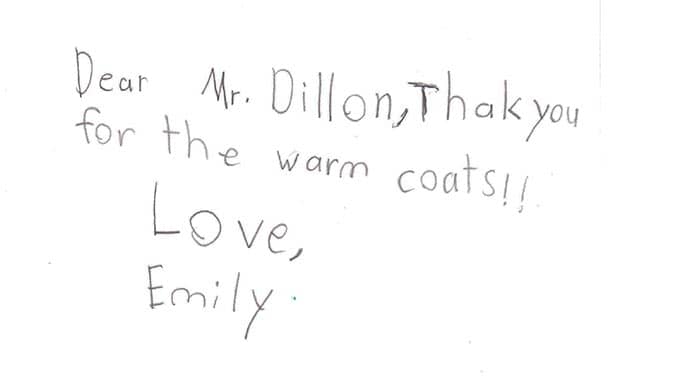 Dear Mr. Dillon, Thak you
for the warm coats!!
Love,
Emily.